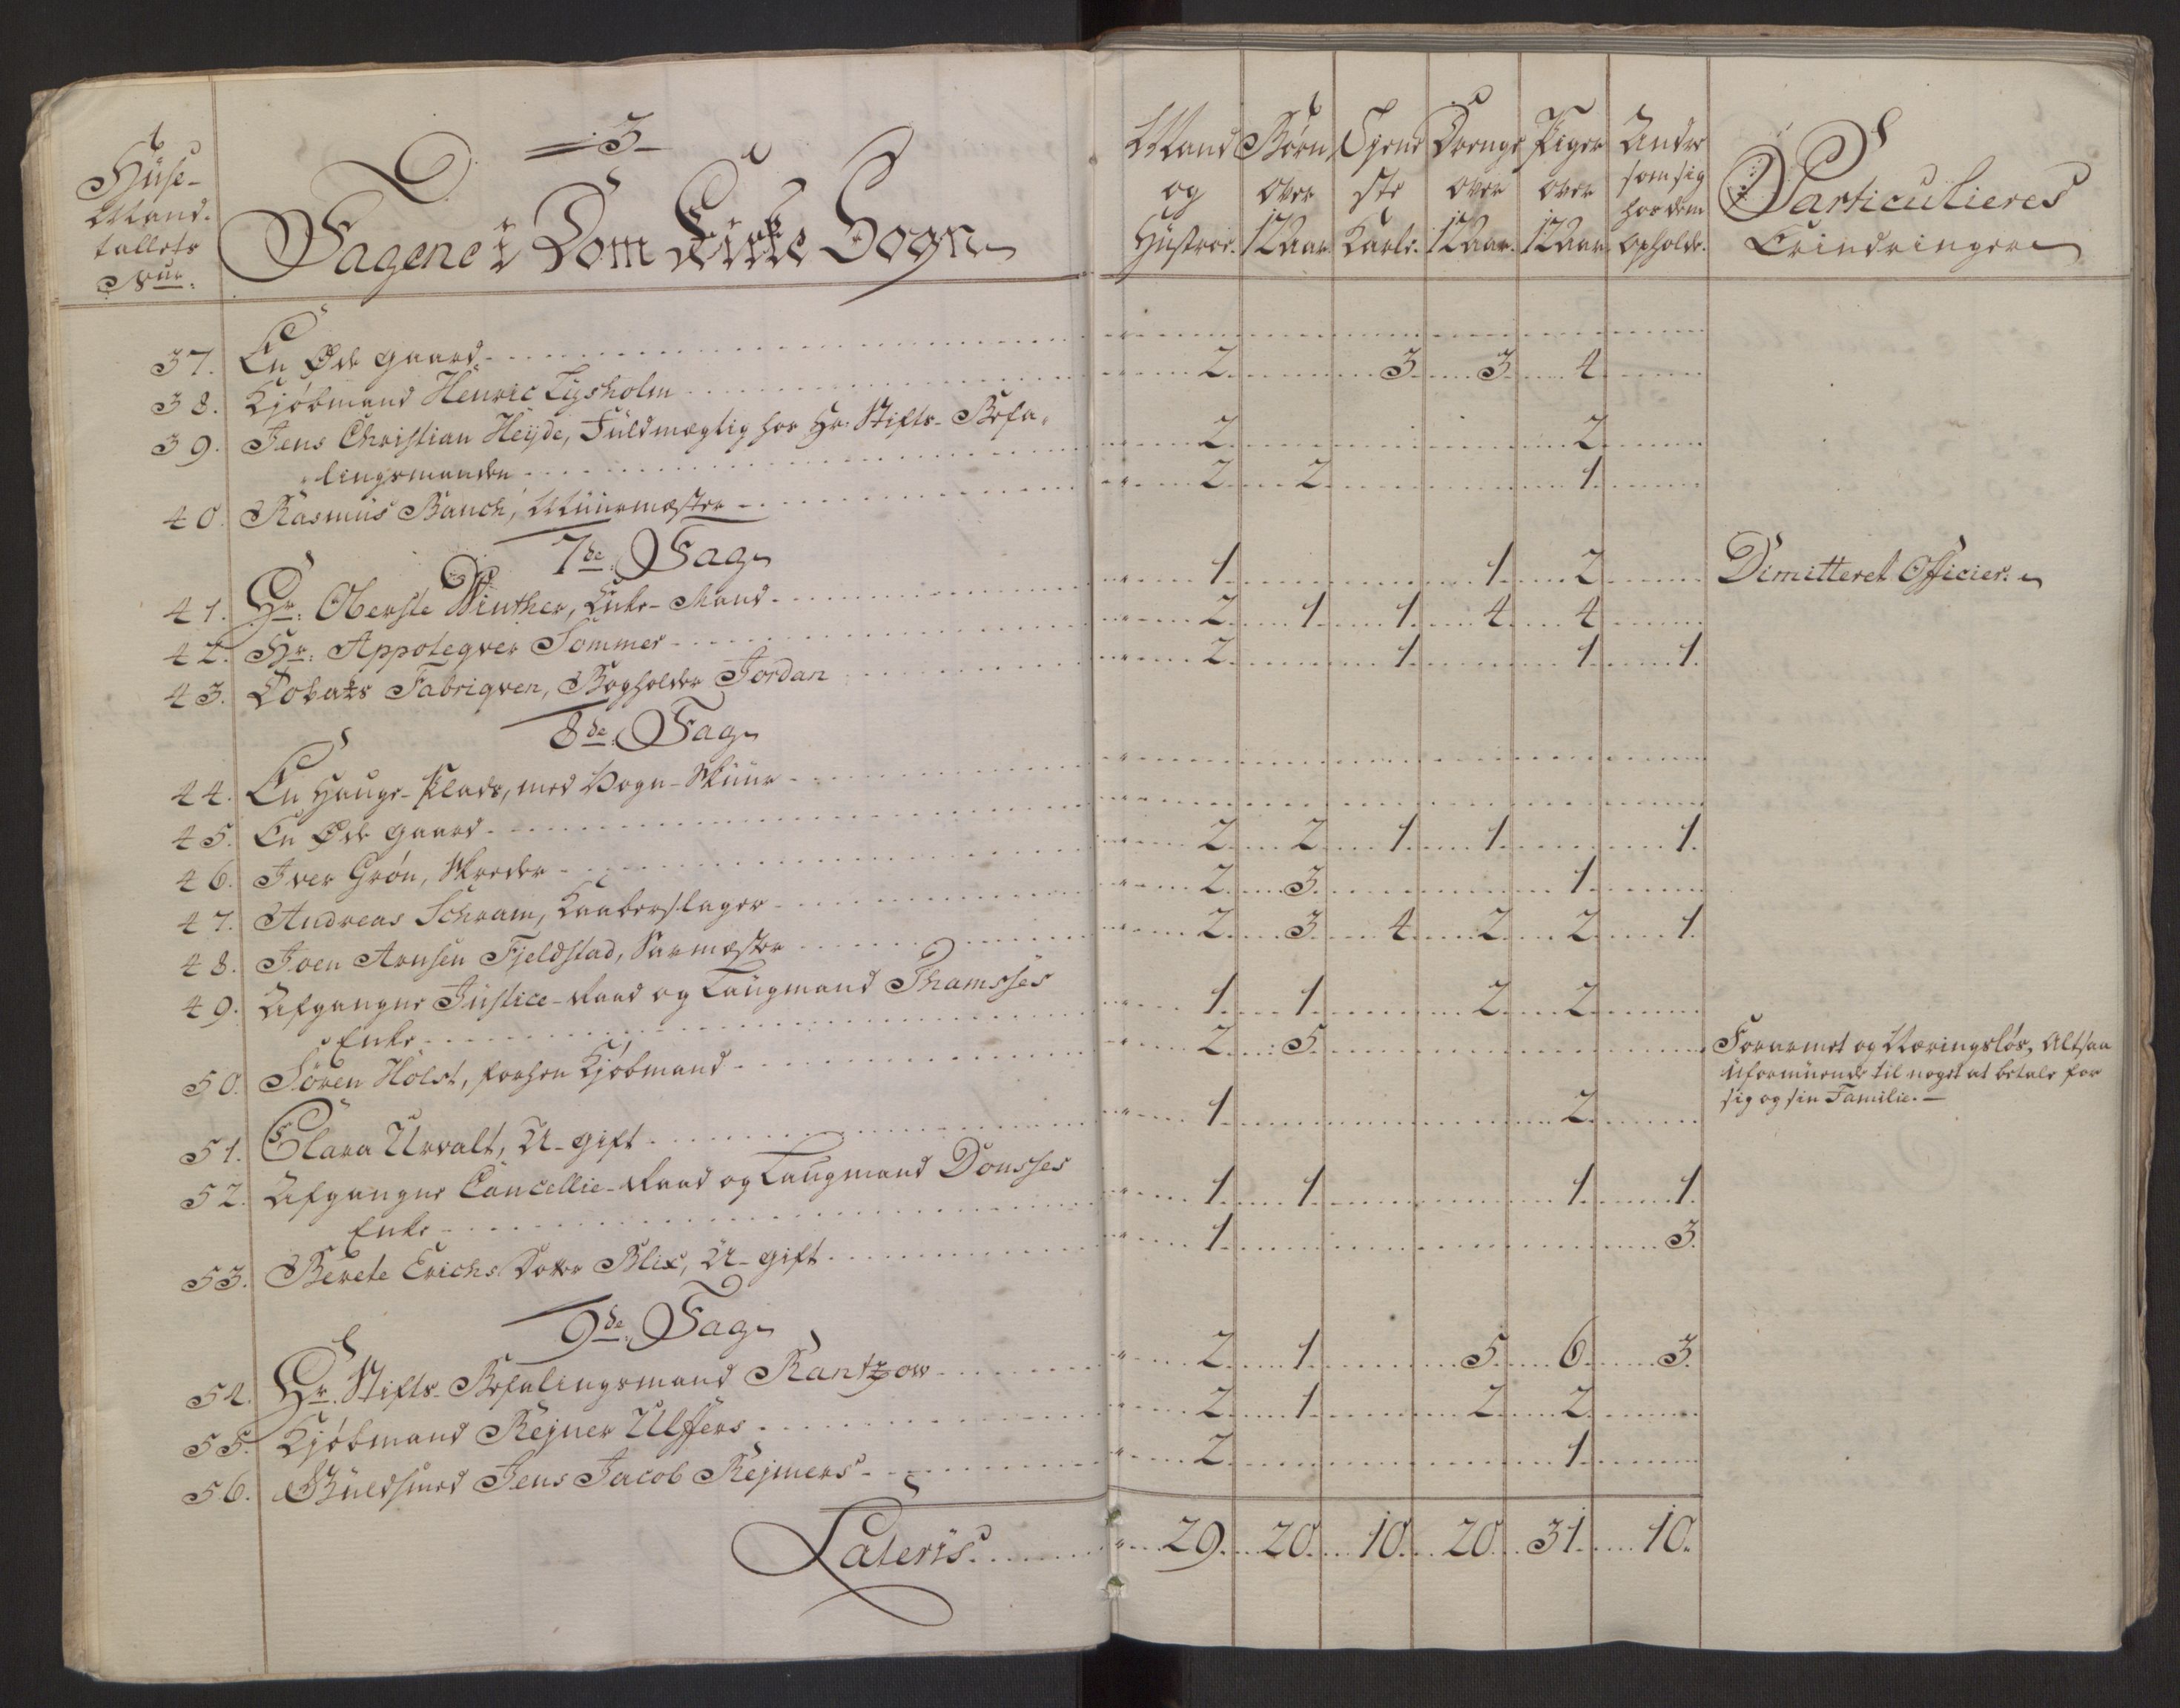 =3=
Huse-
Mand-
tallets
Num:
Tagene i Dom Kirke Sogn
Mand
og
Hustroer.
Børn
over
12 Aar.
Tjene
ste
Karle.
Drenge
over
12 Aar.
Piger
over
12 Aar.
Andre
som sig
hos dem
opholde.
Particulieres
Erindringer
37. En Øde gaard
38. Kjöbmand Henric Lysholm 2. 3. 3. 4.
39. Jens Christian Heyde, Fuldmægtig hos Hr. Stifts-Befa-
lingsmanden 2. 2.
40. Rasmus Bauch, Muurmæster 2. 2. 1.
7de Tag
41. Hr: Oberste Winther, Enke-Mand 1. 1. 2. Dimitteret Officier.
42. Hr: Appoteqver Sommer 2. 1. 1. 4. 4.
43. Tobaks Fabriqven, Bogholder Jordan 2. 1. 1. 1.
8de Tag
44. En Hauge-Plads, med Vogn-Skuur
45. En Øde gaard
46. Iver Grön, Skreder 2. 2. 1. 1. 1.
47. Andreas Schram, Kaaberslager 2. 3. 1.
48. Joen Arnsen Fjeldstad, Garmæster 2. 3. 4. 2. 2. 1.
49. Afgangne Justice-Raad og Laugmand Thamsses
Enke 1. 1. 2. 2.
50. Sören Holst, forhen Kjöbmand 2. 5. Forarmet og Næringslös, Altsaa
Uformuende til noget at betale for
sig og sin Familie.
51. Clara Urvalt, U-gift 1. 2.
52. Afgangne Cancellie-Raad og Laugmand Donsses
Enke 1. 1. 1. 1.
53. Berete Erichs Dotter Blix, U-gift 1. 3.
9de Tag
54. Hr. Stifts-Befalingsmand Rantzow 2. 1. 5. 6. 3.
55. Kjöbmand Rejner Ulffers 2. 1. 2. 2.
56. Guldsmed Jens Jacob Rejmers 2. 1.
Lateris 29. 20. 10. 20. 31. 10.